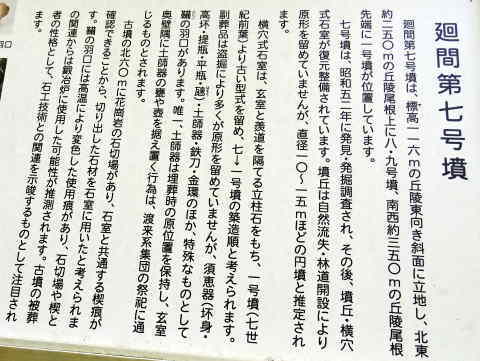 廻間第七号墳
廻間第七号墳は、標高一一六mの丘陵東向き斜面に立地し、北東
約二五〇mの丘陵尾根上に八・九号墳、南西約三五〇mの丘陵尾根
先端に一号墳が位置しています。
七号墳は、昭和五二年に発見・発掘調査され、その後、墳丘・横穴
式石室が復元整備されています。墳丘は自然流失・林道開設により
原形を留めていませんが、直径一〇～一五mほどの円墳と推定され
ます。
横穴式石室は、玄室と羨道を隔てる立柱石をもち、一号墳(七世
紀前葉)より古い型式を留め、七→一号墳の築造順と考えられます。
副葬品は盗掘により多くが原形を留めていませんが、須恵器(坏身・
高坏・提瓶・平瓶・𤭯)・土師器・鉄刀・金環のほか、特殊なものとして
鞴の羽口があります。唯一、土師器は埋葬時の原位置を保持し、玄室
奥壁隅に土師器の甕や壺を据え置く行為は、渡来系集団の祭祀に通
じるものとされます。
古墳の北六〇mに花崗岩の石切場があり、石室と共通する楔痕が
確認できることから、切り出した石材を石室に用いたと考えられま
す。鞴の羽口には高温により変色した使用痕があり、石切場や楔と
の関連からは鍛冶炉に使用した可能性が推測されます。古墳の被葬
者の性格として、石工技術との関連を示唆するものとして注目され
羽口